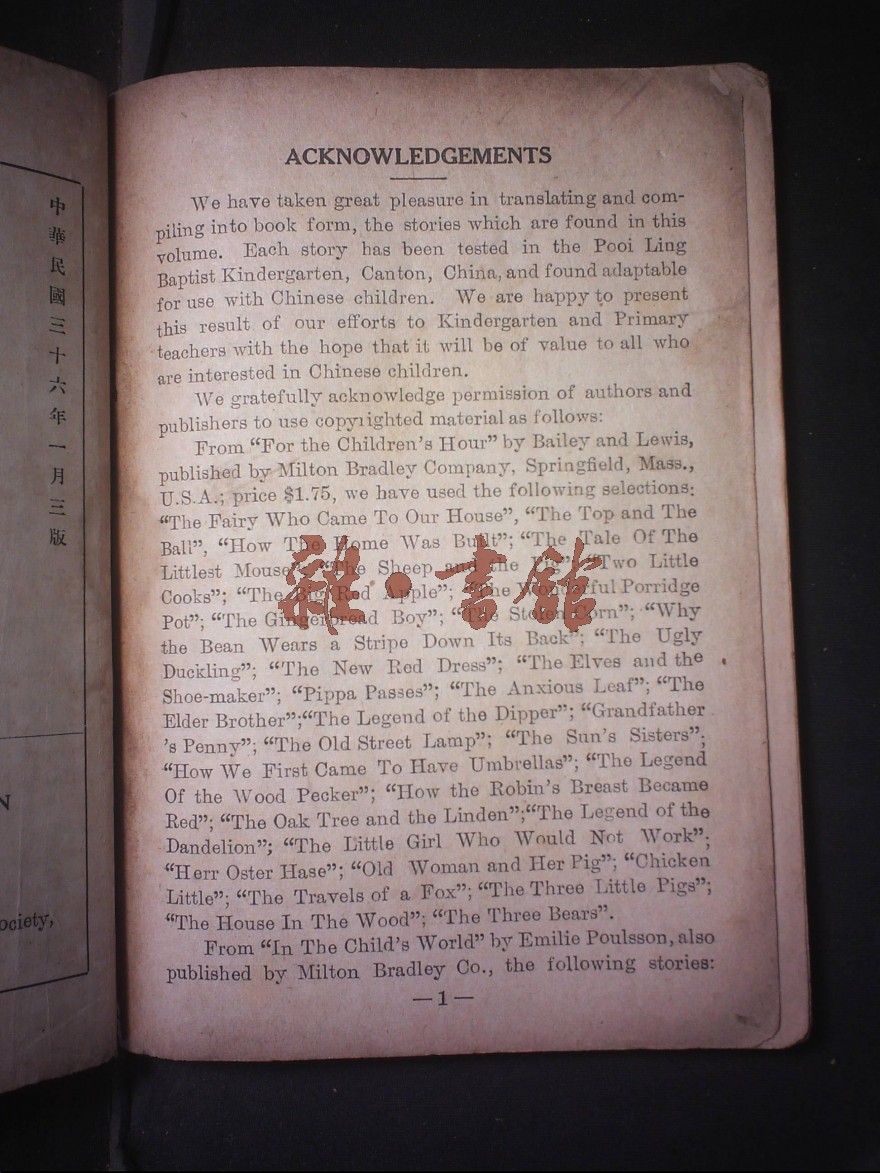 中華民國三十六年一月三版
N
ociety,
ACKNOWLEDGEMENTS
We have taken great pleasure in translating and com-
piling into book form, the stories which are found in this
volume. Each story has been tested in the Pooi Ling
Baptist Kindergarten, Canton, China, and found adaptable
for use with Chinese children. We are happy to present
this result of our efforts to Kindergarten and Primary
teachers with the hope that it will be of value to all who
are interested in Chinese children.
We gratefully acknowledge permission of authors and
publishers to use copyrighted material as follows:
From “For the Children’s Hour” by Bailey and Lewis,
published by Milton Bradley Company, Springfield, Mass.,
U.S.A.; price $1.75, we have used the following selections:
“The Fairy Who Came To Our House”, “The Top and The
Ball”, “How The Home Was Built”; “The Tale Of The
Littlest Mouse”; “The Sheep and the Pig”; “Two Little
Cooks”; “The Big Red Apple”; “The Wonderful Porridge
Pot”; “The Gingerbread Boy”; “The Stolen Corn”; “Why
the Bean Wears a Stripe Down Its Back”; “The Ugly
Duckling”; “The New Red Dress”; “The Elves and the
Shoe-maker”; “Pippa Passes”; “The Anxious Leaf”; “The
Elder Brother”;“The Legend of the Dipper”; “Grandfather
’s Penny”; “The Old Street Lamp”; “The Sun’s Sisters”;
“How We First Came To Have Umbrellas”; “The Legend
Of the Wood Pecker”; “How the Robin’s Breast Became
Red”; “The Oak Tree and the Linden”;“The Legend of the
Dandelion”; “The Little Girl Who Would Not Work”;
“Herr Oster Hase”; “Old Woman and Her Pig”; “Chicken
Little”; “The Travels of a Fox”; “The Three Little Pigs”;
“The House In The Wood”; “The Three Bears”.
From “In The Child’s World” by Emilie Poulsson, also
published by Milton Bradley Co., the following stories:
—1—
雜·書館